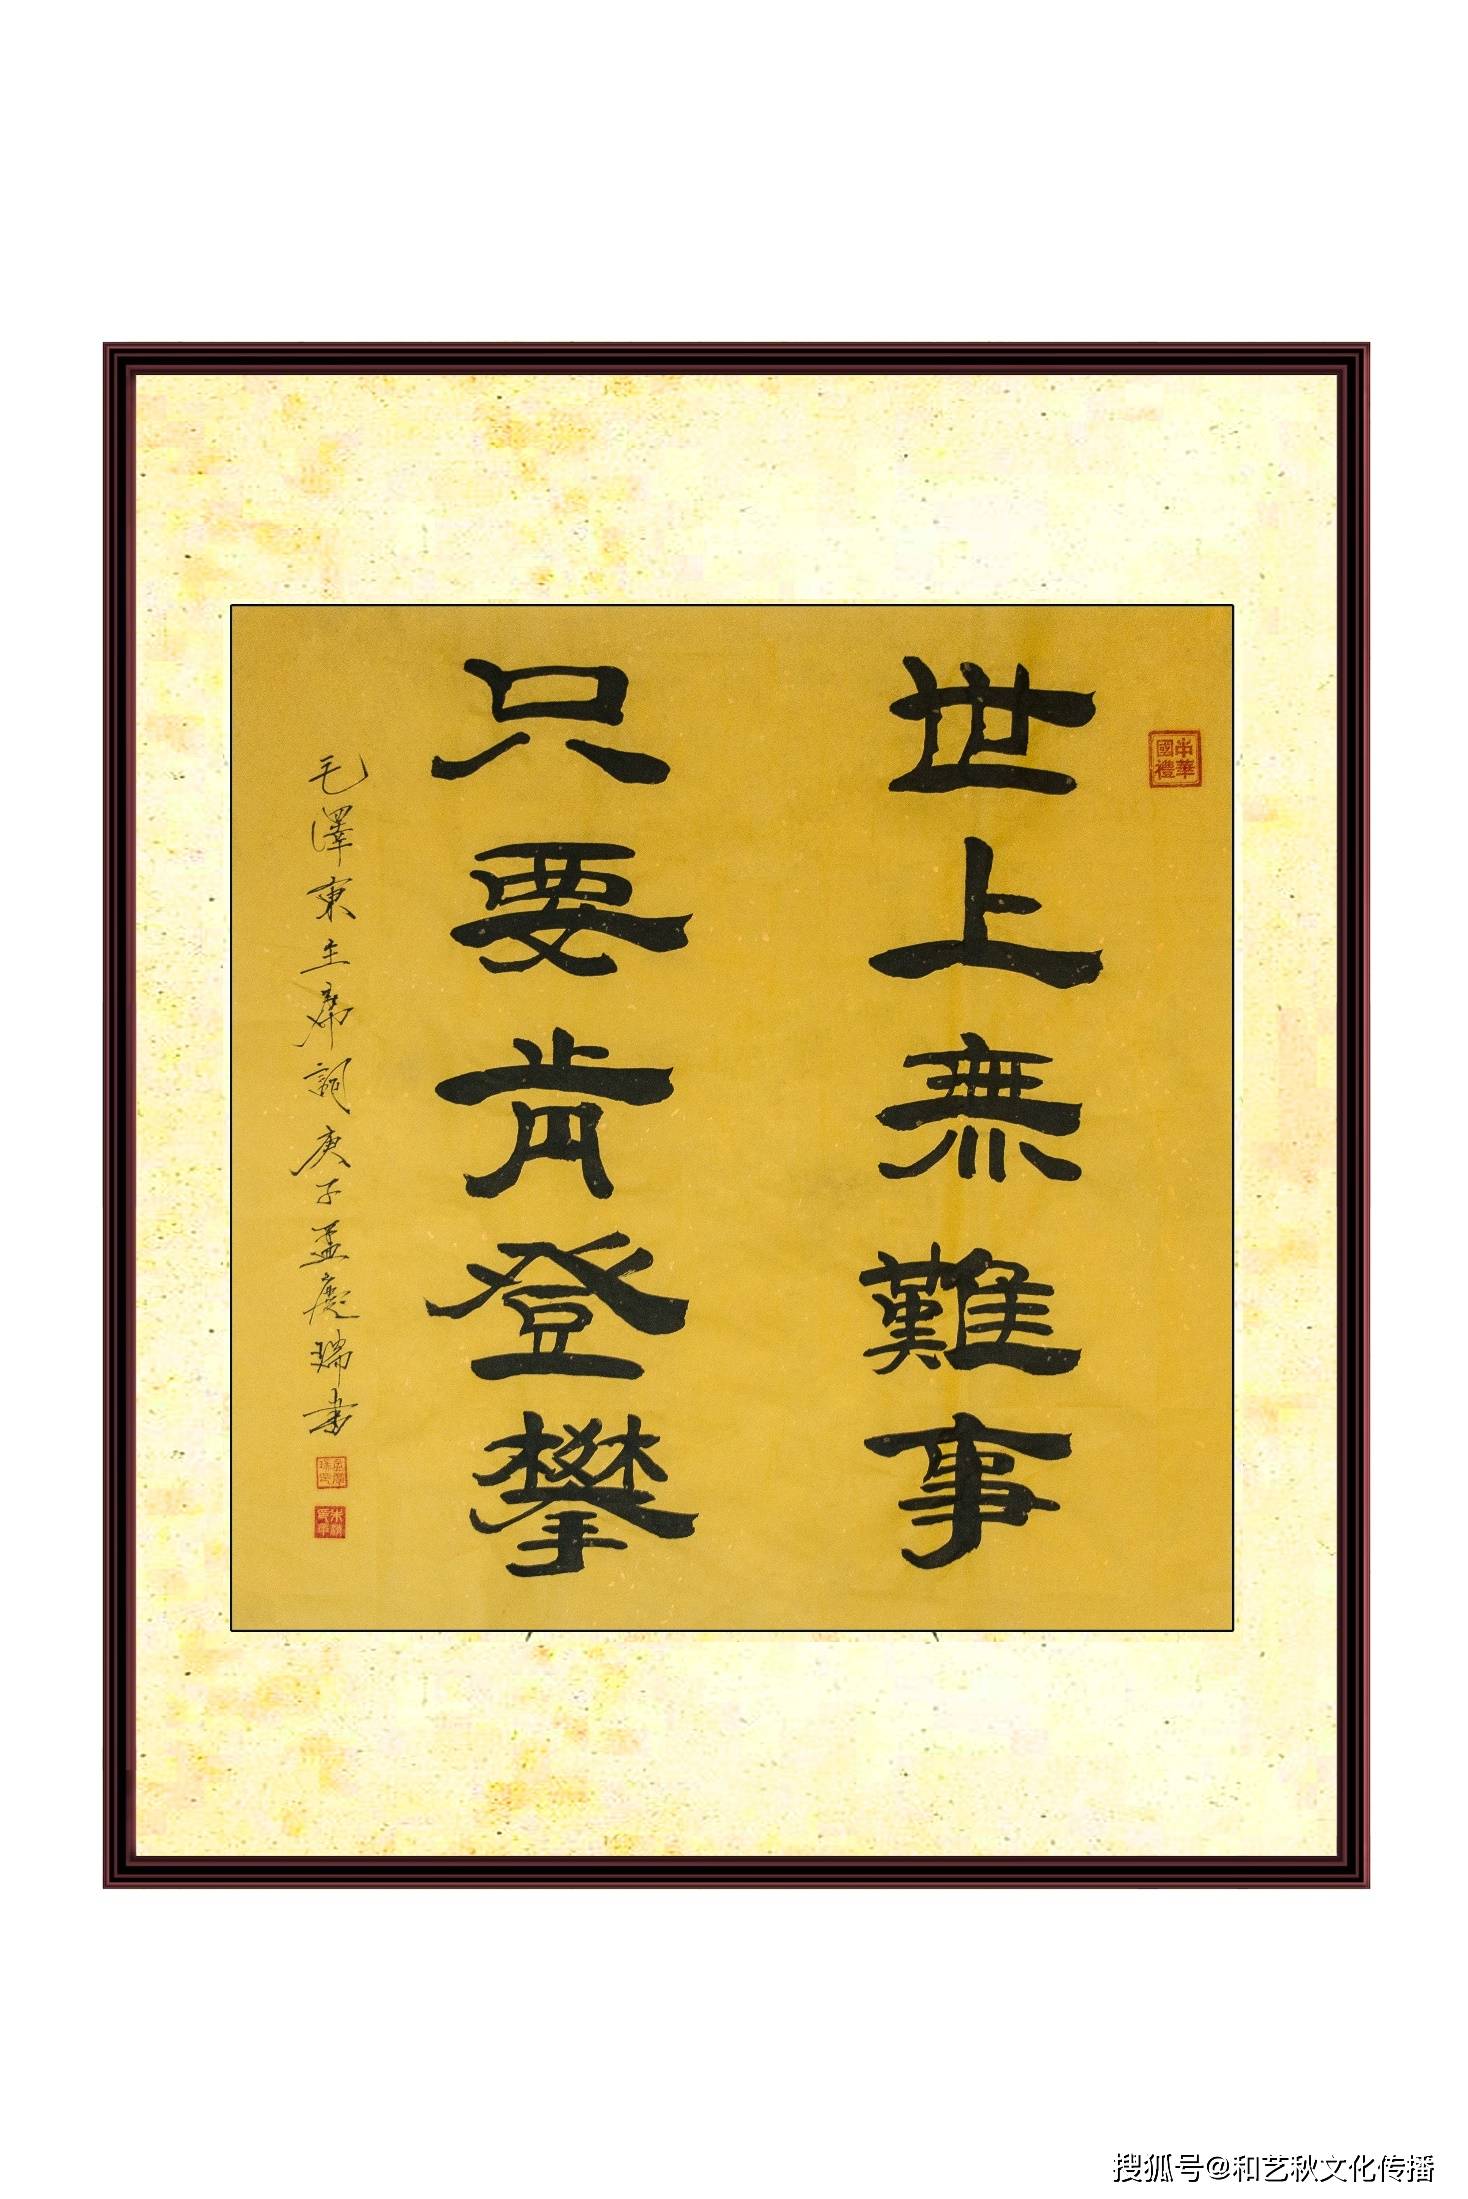 世上無難事
只要肯登攀
毛澤東主席詞庚子孟慶瑞書
中華國禮
搜狐号@和艺秋文化传播